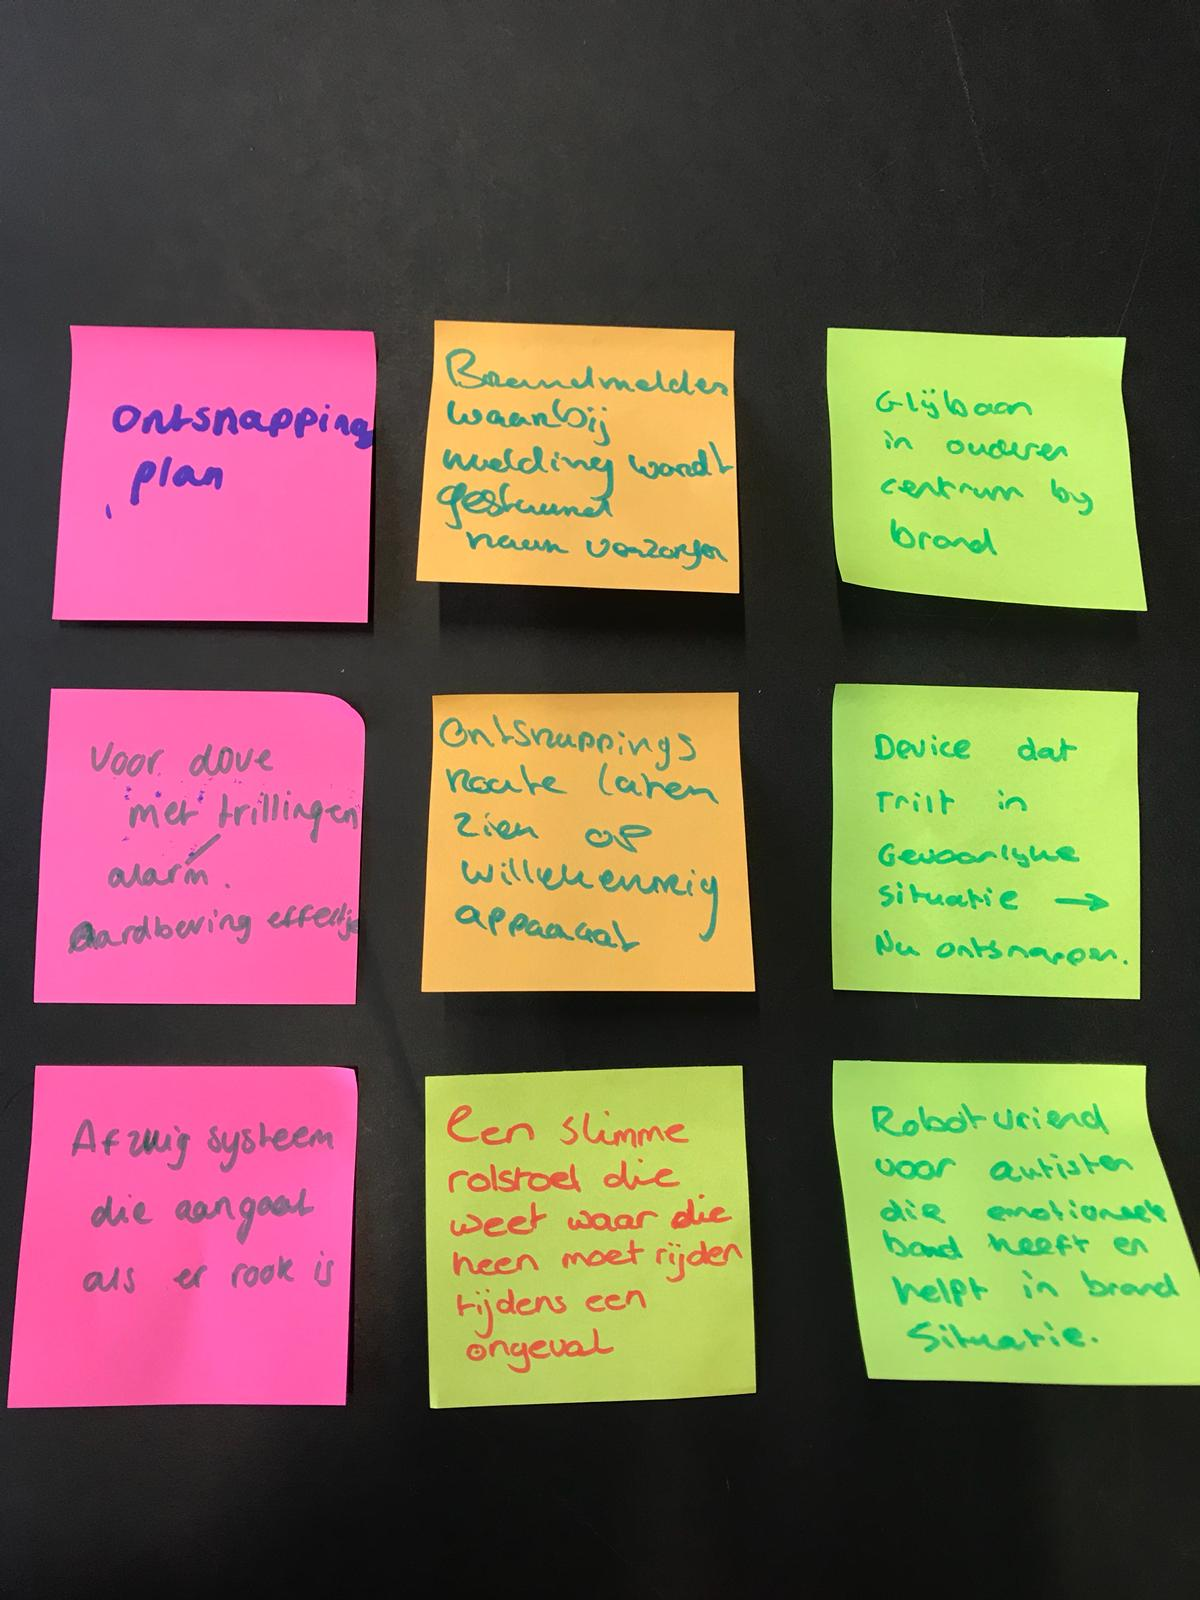 Ontsnapping
plan
Brandmelder
waarbij
melding wordt
gestuurd
naar verzorger
Glijbaan
in ouderen
centrum by
brand
Voor dove
met trillingen
alarm.
Aardbeving effectje
Ontsnappings
route laten
zien op
willekeurig
apparaat
Device dat
Trilt in
Gevaarlyke
situatie →
Nu ontsnappen.
Afzuig systeem
die aangaat
als er rook is
Een slimme
rolstoel die
weet waar die
heen moet rijden
tijdens een
ongeval
Robot vriend
voor autisten
die emotionele
band heeft en
helpt in brand
situatie.